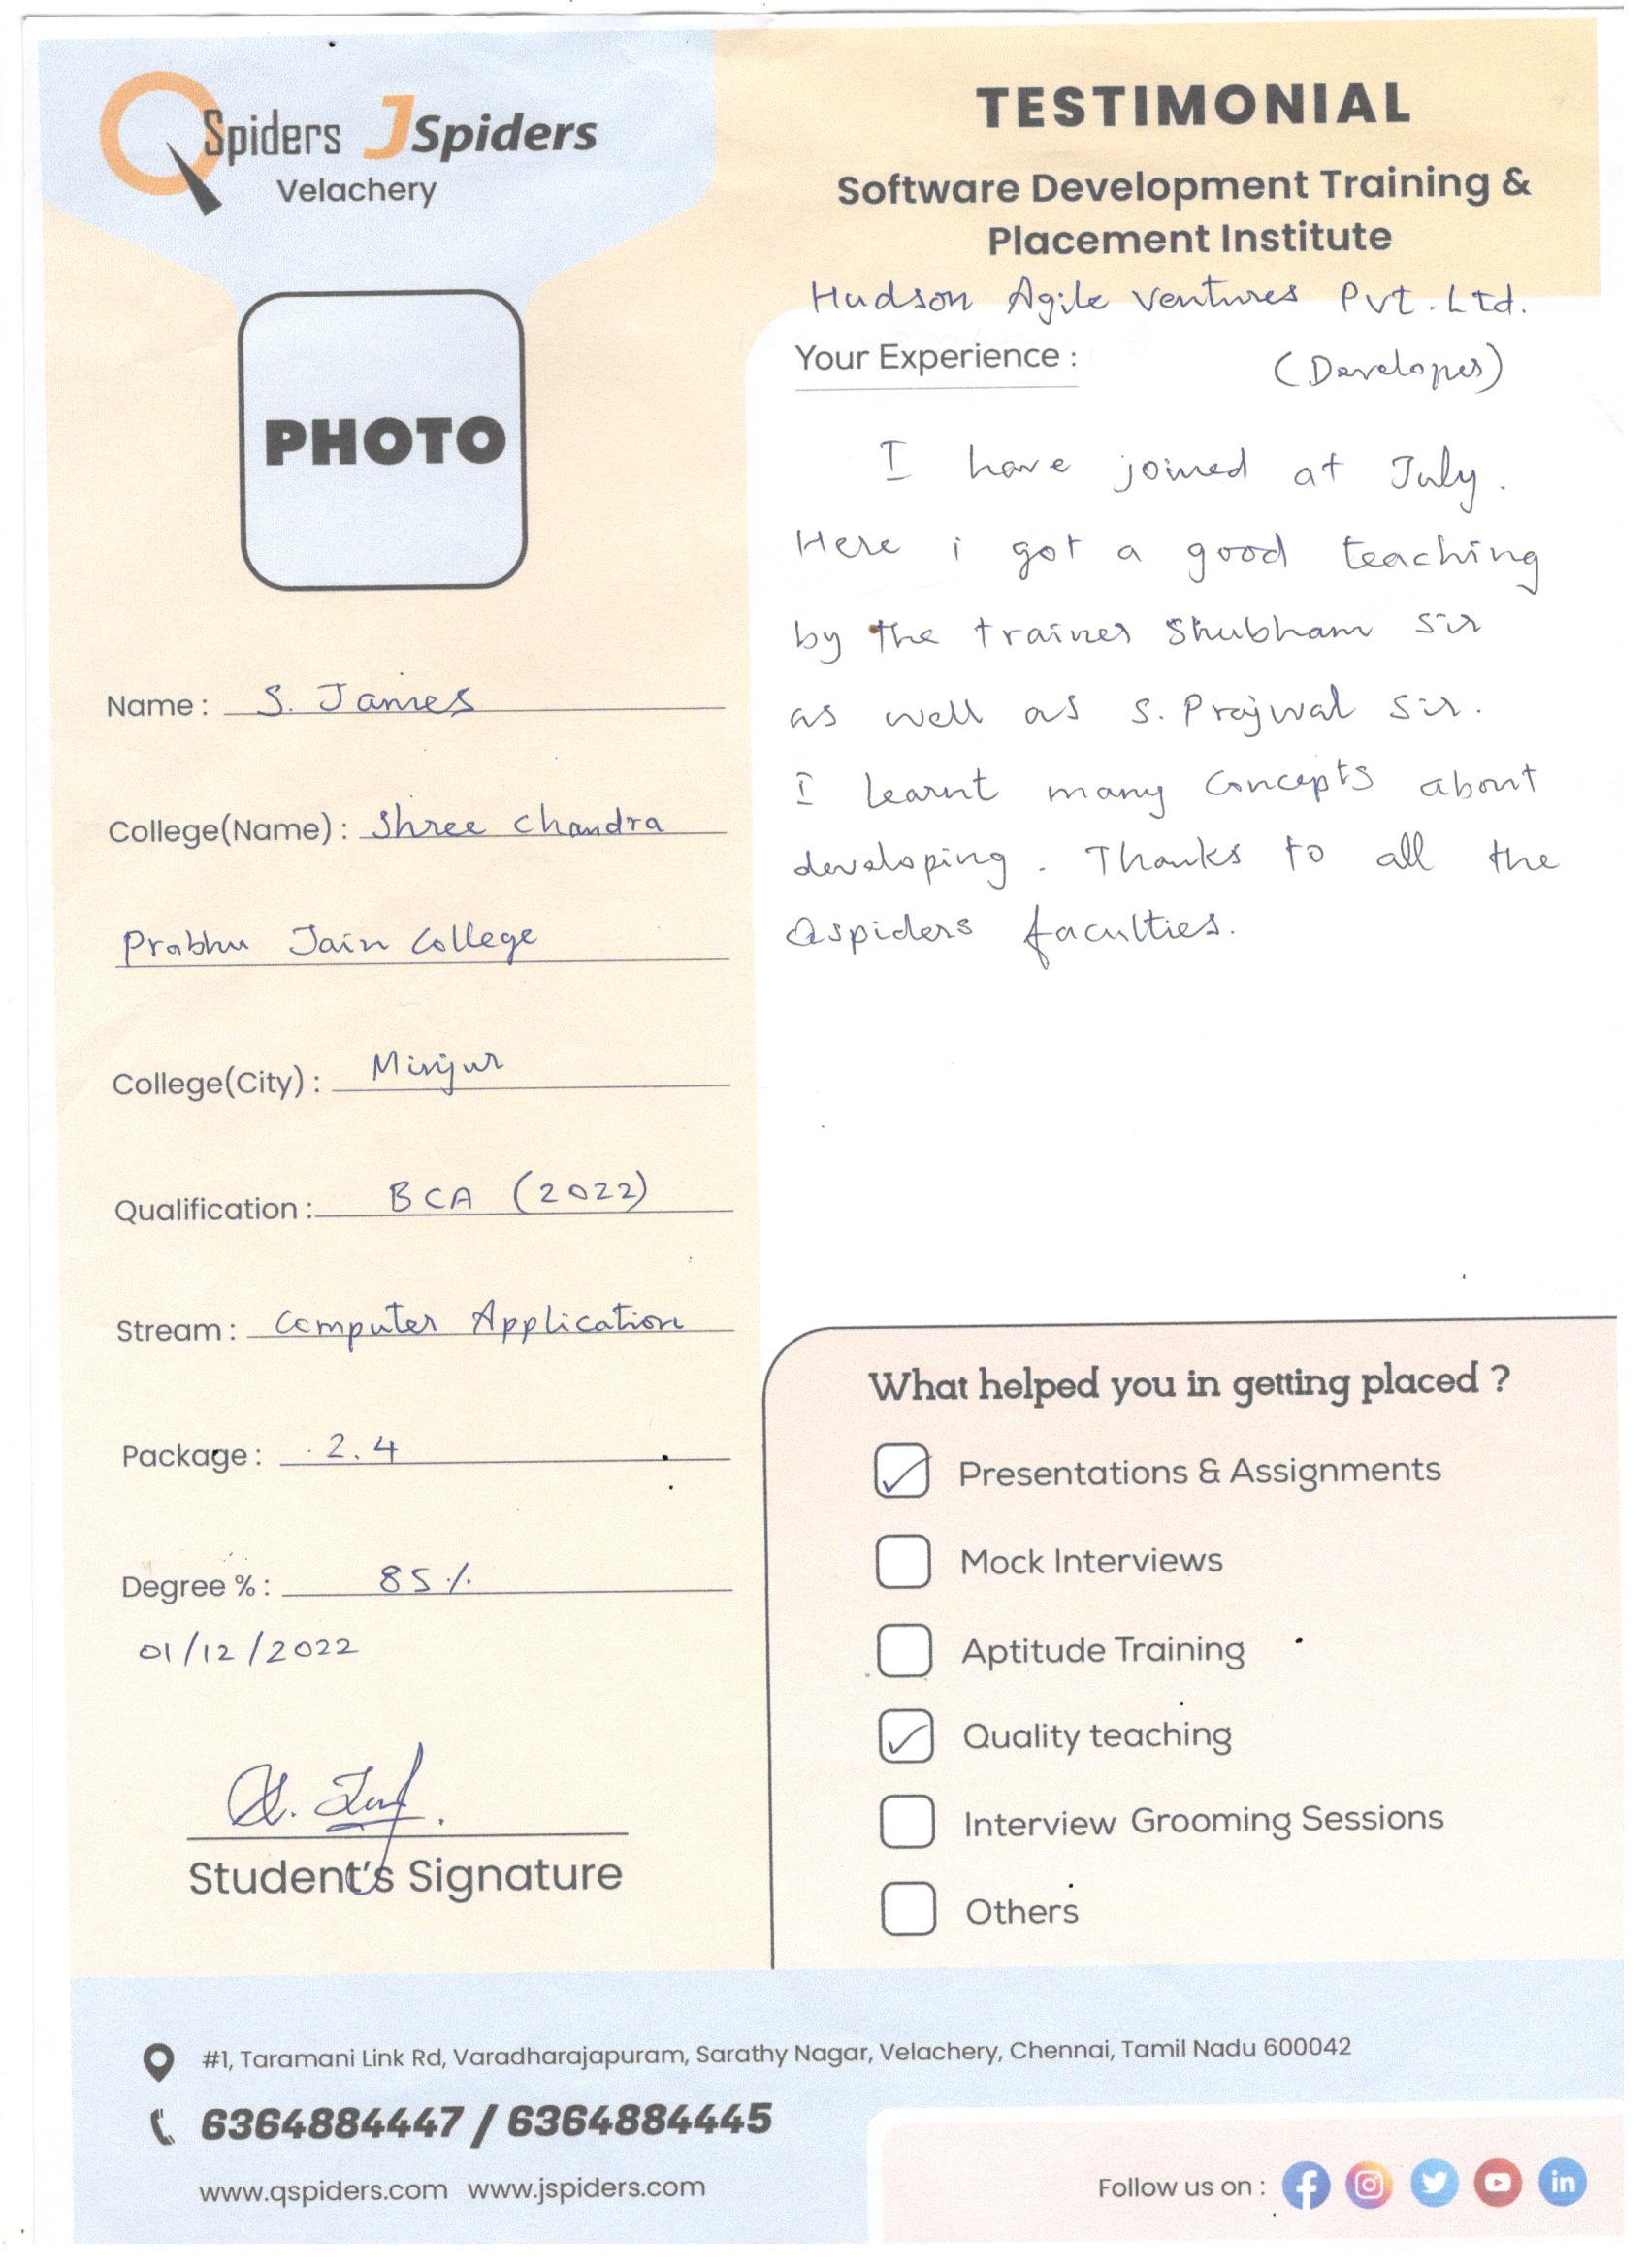 QSpiders JSpiders
Velachery
PHOTO
Name : S. James
College(Name) : Shree Chandra
Prabhu Jain College
College(City) : Minjur
Qualification : BCA (2022)
Stream : Computer Application
Package : 2.4
Degree % : 85%
01/12/2022
Student's Signature
TESTIMONIAL
Software Development Training &
Placement Institute
Hudson Agile Ventures Pvt. Ltd.
Your Experience : (Developer)
I have joined at July.
Here i got a good teaching
by the trainer Shubham Sir
as well as S. Prajwal Sir.
I learnt many Concepts about
developing. Thanks to all the
Qspiders faculties.
What helped you in getting placed ?
Presentations & Assignments
Mock Interviews
Aptitude Training
Quality teaching
Interview Grooming Sessions
Others
#1, Taramani Link Rd, Varadharajapuram, Sarathy Nagar, Velachery, Chennai, Tamil Nadu 600042
6364884447 / 6364884445
www.qspiders.com www.jspiders.com
Follow us on :